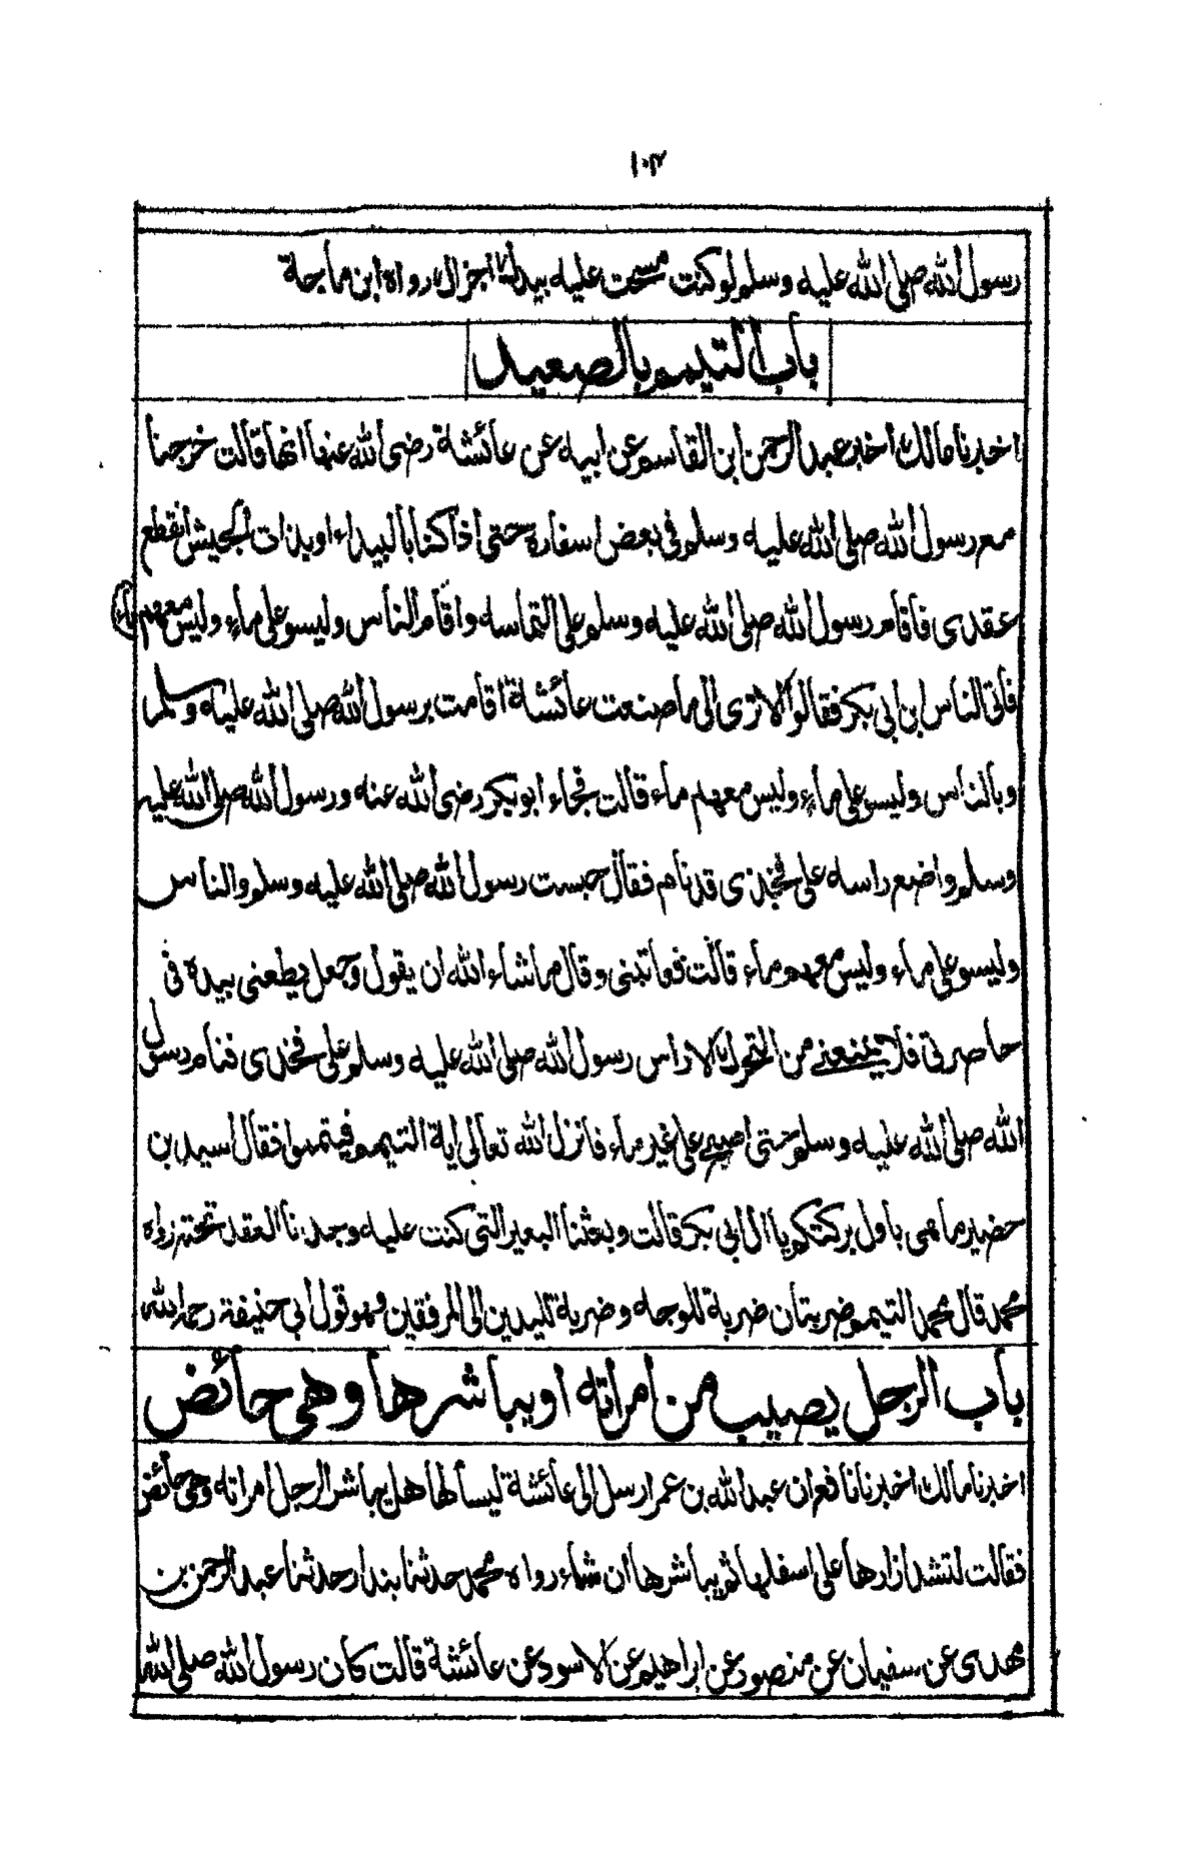 ١٠٢
رسول الله صلى الله عليه وسلم لوكنت مسحت عليه بيدك اجزاك رواه ابن ماجة
باب التيمم بالصعيد
اخبرنا مالك اخبر عبد الرحمن ابن القاسم عن ابيه عن عائشة رضى الله عنها انها قالت خرجنا
مع رسول الله صلى الله عليه وسلم فى بعض اسفاره حتى اذا كنا بالبيداء اوبذات الجيش انقطع
عقدى فاقام رسول الله صلى الله عليه وسلم على التماسه واقام الناس وليسو على ماء وليس معهم ماء
فاتى الناس ابن ابى بكر فقالوا الا ترى الى ما صنعت عائشة اقامت برسول الله صلى الله عليه وسلم
وبالناس وليسو على ماء وليس معهم ماء قالت فجاء ابو بكر رضى الله عنه ورسول الله صلى الله عليه
وسلم واضع راسه على فخذى قد نام فقال حبست رسول الله صلى الله عليه وسلم والناس
وليسو على ماء وليس معهم ماء قالت فعاتبنى وقال ما شاء الله ان يقول وجعل يطعنى بيده فى
خاصرتى فلا يمنعنى من التحرك الا راس رسول الله صلى الله عليه وسلم على فخذى فنام رسول
الله صلى الله عليه وسلم حتى اصبح على غير ماء فانزل الله تعالى اية التيمم فيتمموا فقال اسيد بن
حضير ما هى باول بركتكم يا ال ابى بكر قالت وبعثنا البعير التى كنت عليه وجدنا العقد تحته رواه
محمد قال محمد التيمم ضربتان ضربة للوجه وضربة لليدين الى المرفقين وهو قول ابى حنيفة رحمه الله
باب الرجل يصيب من امراته او يباشرها وهى حائض
اخبرنا مالك اخبرنا نافع ان عبد الله بن عمر ارسل الى عائشة ليسألها هل يباشر الرجل امراته وهى حائض
فقالت لتشد ازارها على اسفلها ثم يباشرها ان شاء رواه محمد حدثنا بندار حدثنا عبد الرحمن بن
مهدى عن سفيان عن منصور عن ابراهيم عن الاسود عن عائشة قالت كان رسول الله صلى الله